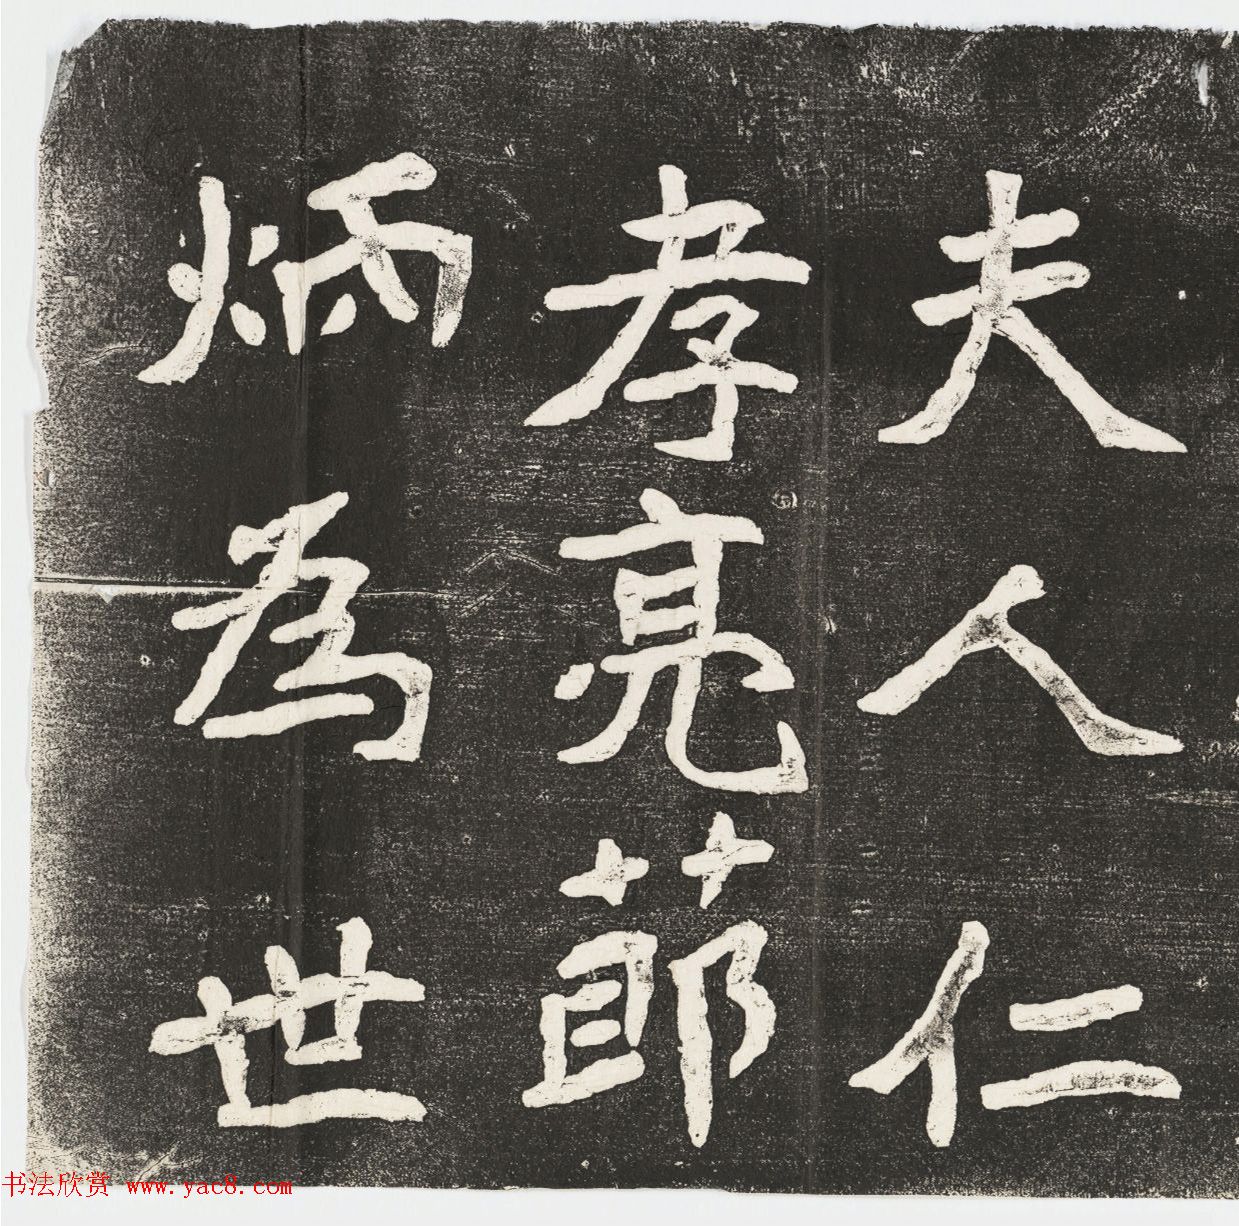 夫人仁
孝亮節
炳為世
书法欣赏 www.yac8.com